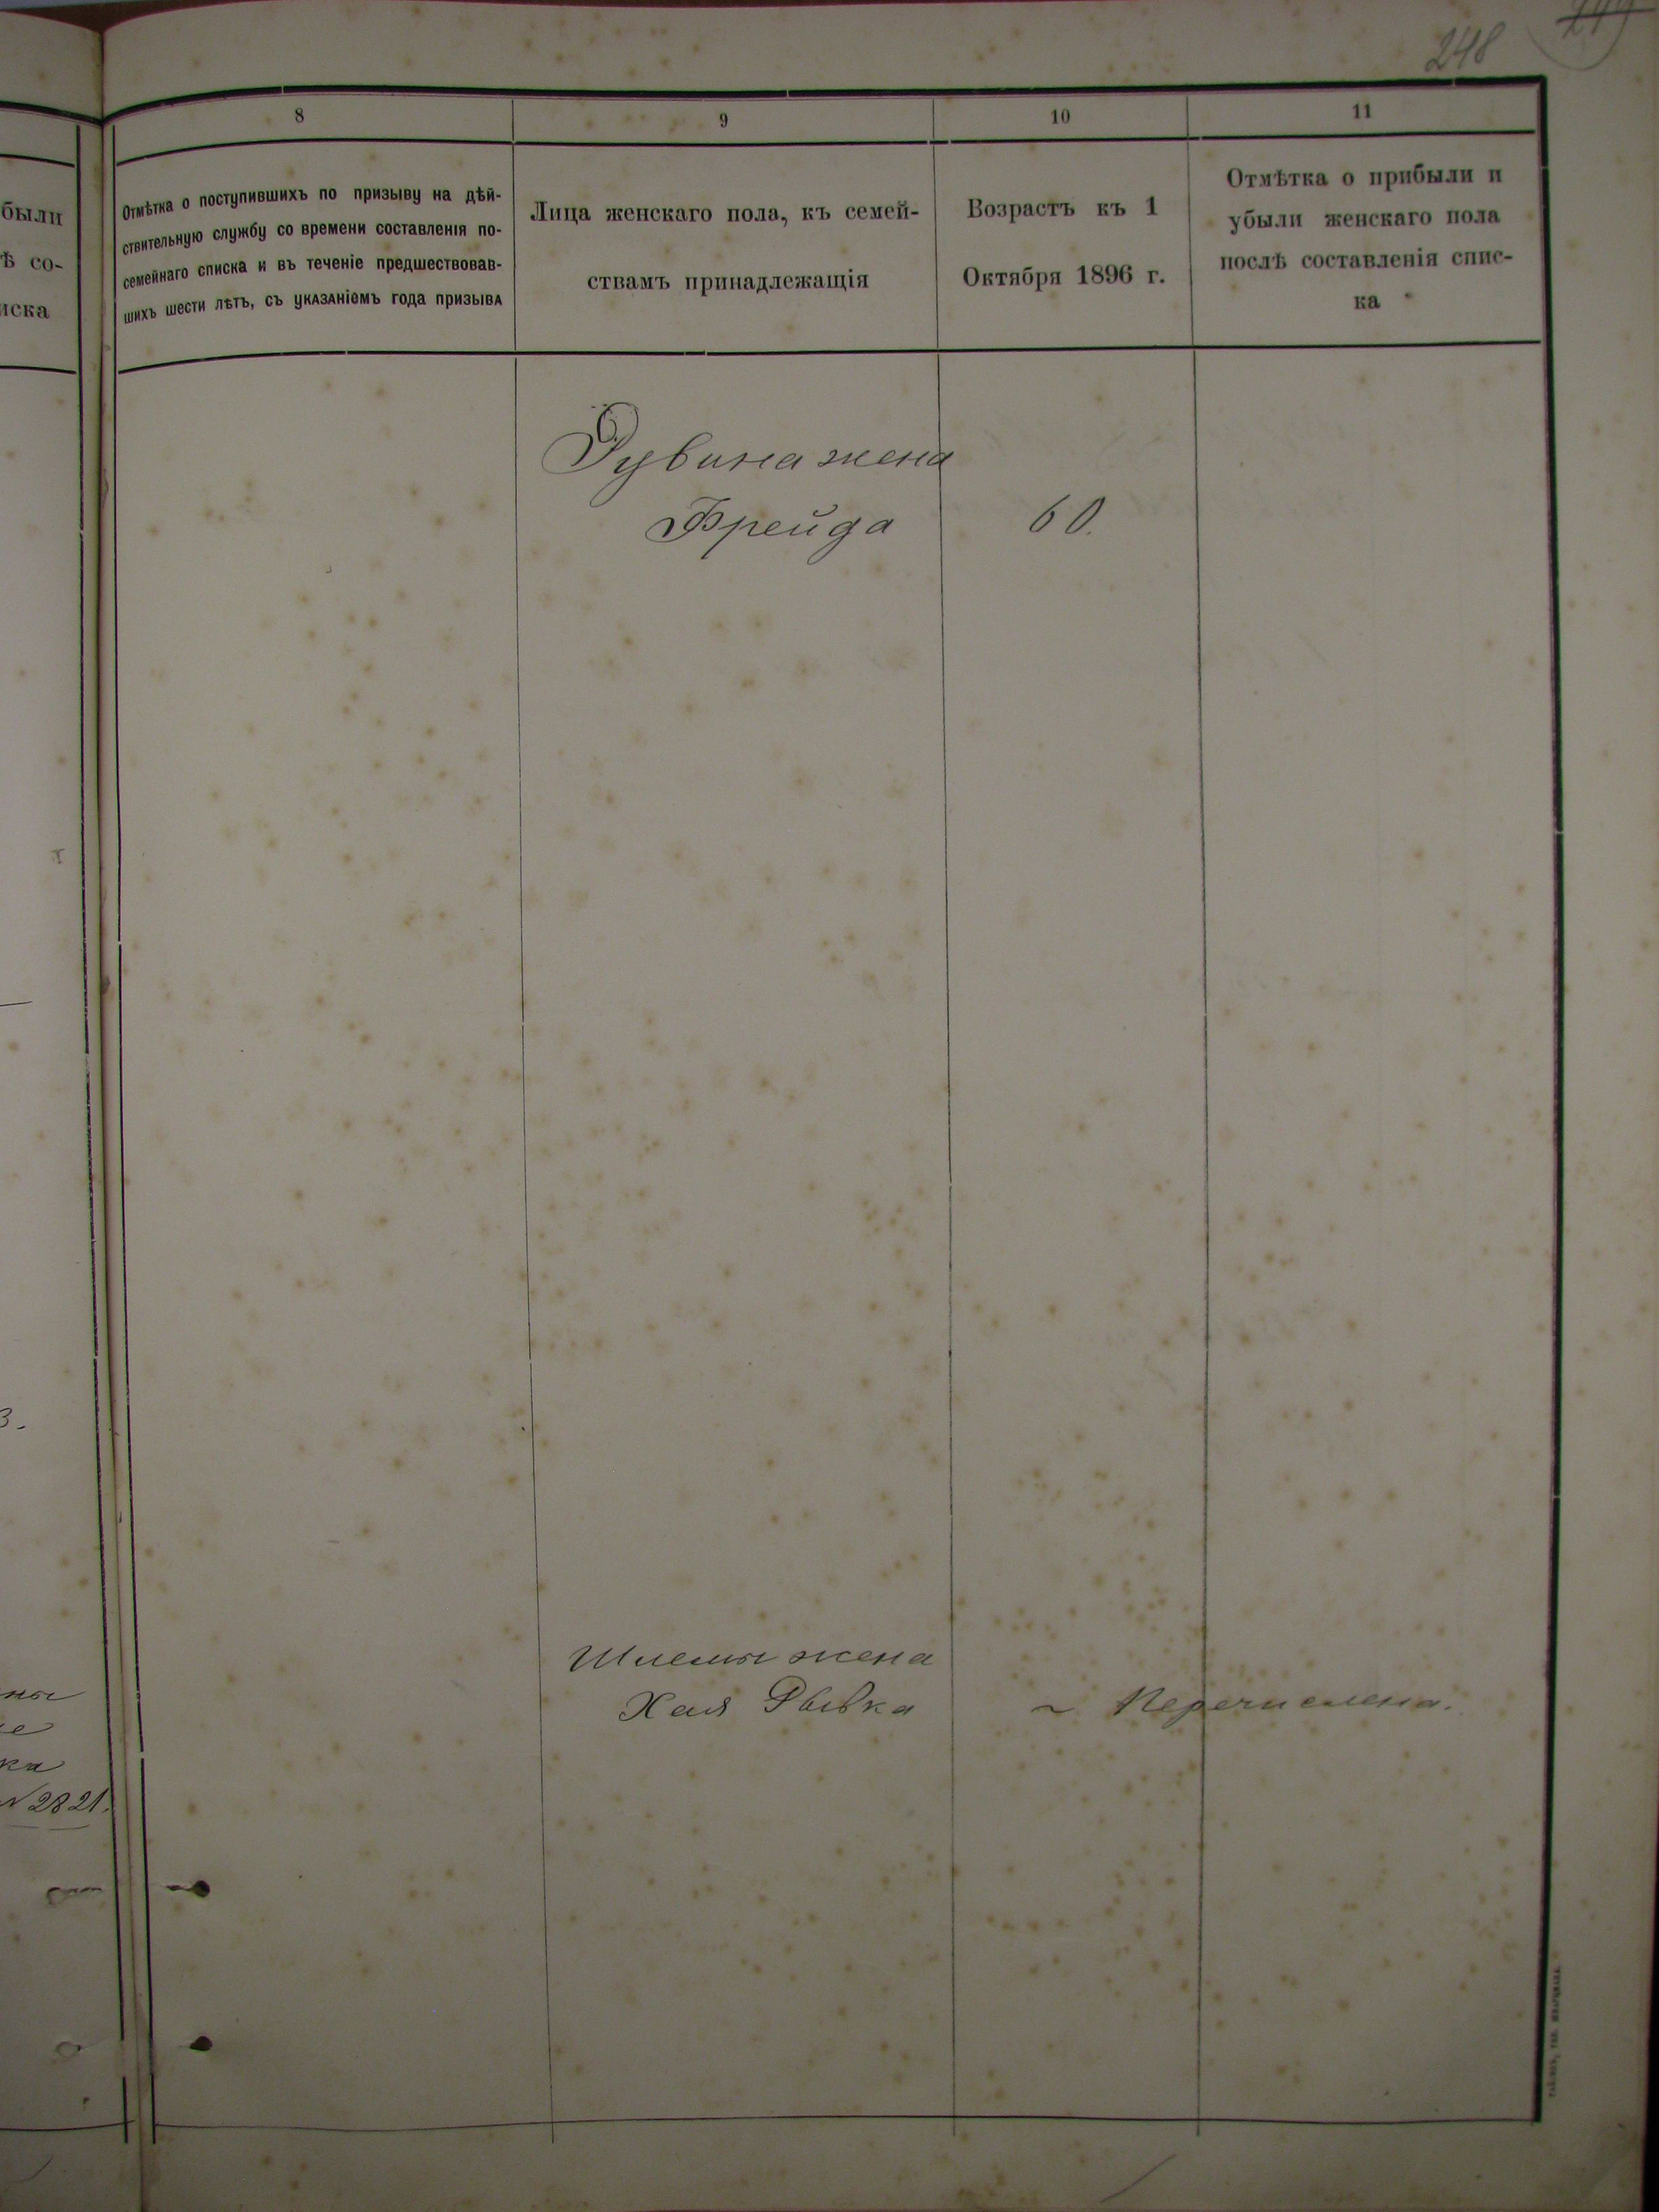 248
8
9
10
11
были
ѣ со-
иска
Отмѣтка о поступившихъ по призыву на дѣй-
ствительную службу со времени составленія по-
семейнаго списка и въ теченіе предшествовав-
шихъ шести лѣтъ, съ указаніемъ года призыва
Лица женскаго пола, къ семей-
ствамъ принадлежащія
Возрастъ къ 1
Октября 1896 г.
Отмѣтка о прибыли и
убыли женскаго пола
послѣ составленія спис-
ка
Рувина жена
Брейда 60.
3.
Шлемы жена
Хая Рывка ~ Перечислена.
ны
е
ка
№ 2821.